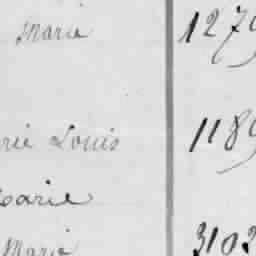 Marie 1279
rie Louis 1189
Marie
Marie 3102